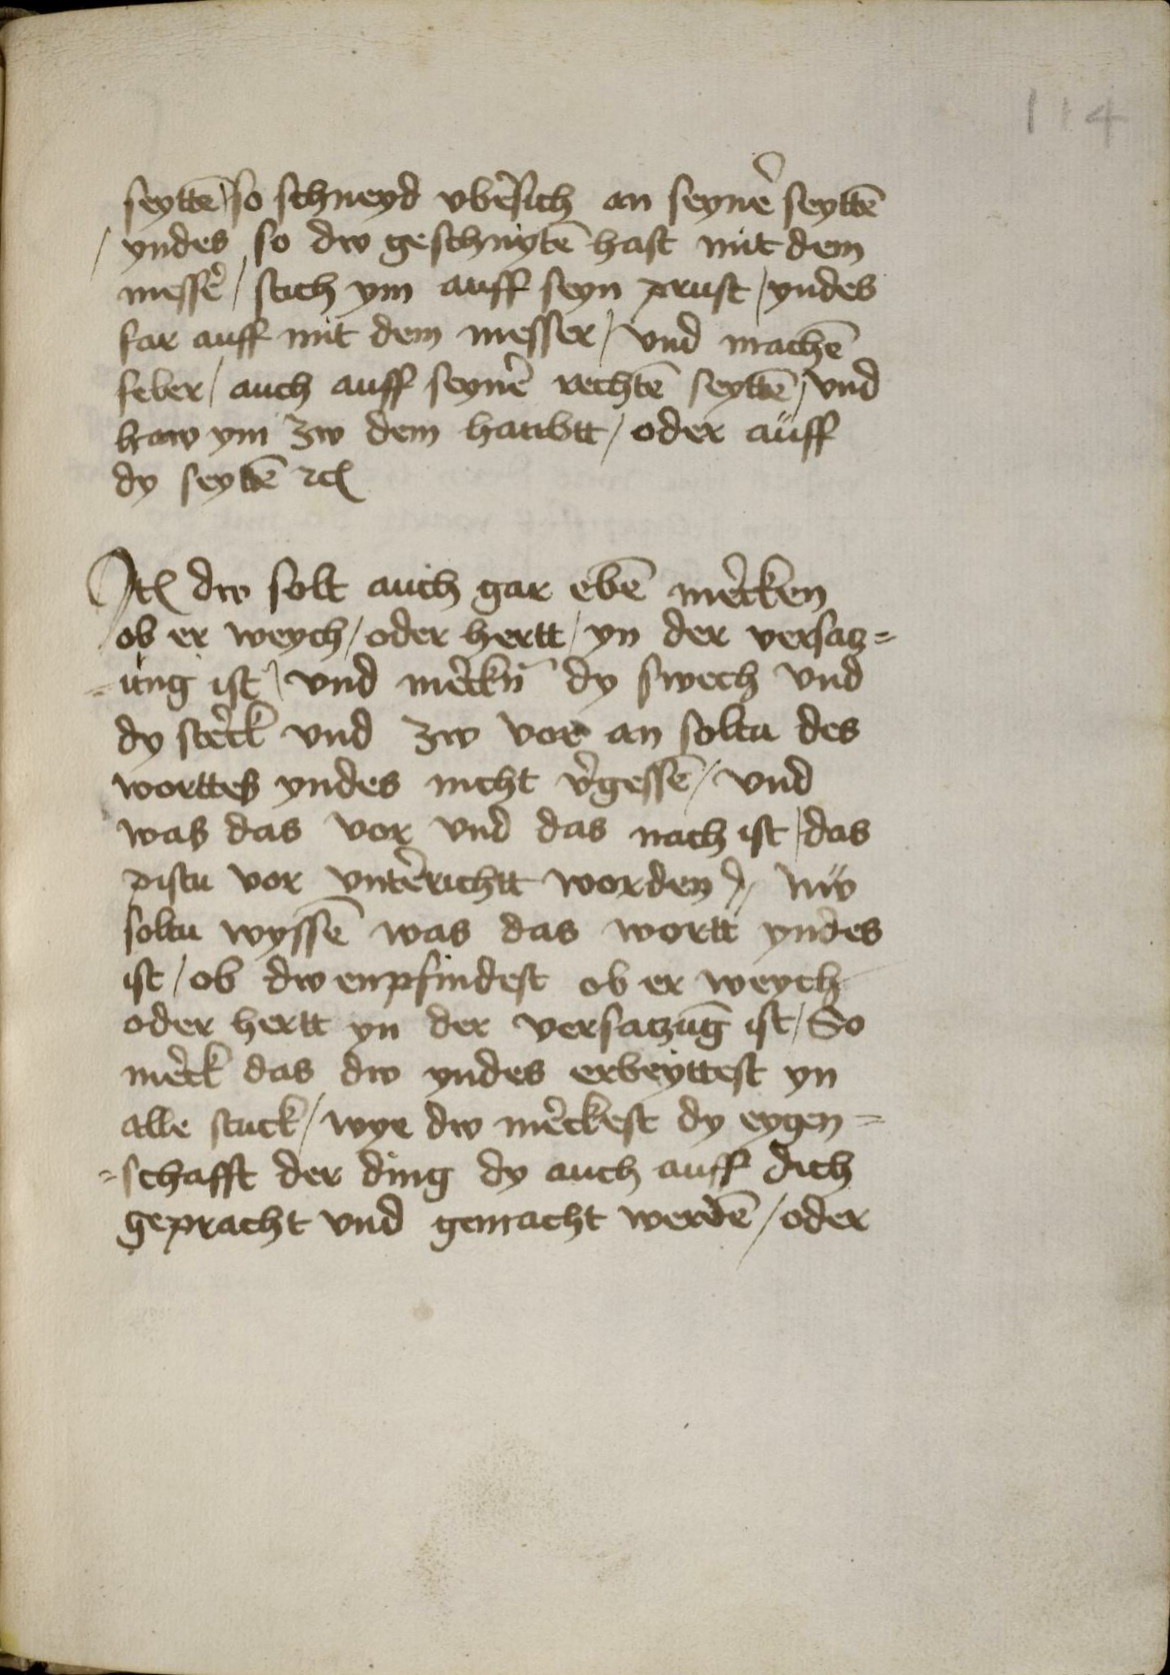 114
seyttē / so schneyd vbersich an seyner seyttē
/ yndes so dw geschnytē hast mit dem
messer / stich ym auff seyn prust / yndes
far auff mit dem messer / vnd machē
feler / auch auff seyner rechtē seyttē / vnd
haw ym zw dem haubtt / oder auff
dy seyttē ⁊cꝭ
Itꝭ dw solt auch gar ebē mercken
ob er weych / oder hertt / yn der versatz=
=ung ist / vnd merckñ dy swech vnd
dy sterck vnd zw vor an soltu des
worttes yndes nicht v̉gessē / vnd
was das vor vnd das nach ist / das
pistu vor vnterrichtt worden // nw
soltu wyssē was das wortt yndes
ist / ob dw enpfindest ob er weych
oder hertt yn der versatzūg ist / So
merck das dw yndes erbeyttest yn
alle stuck / wye dw merckest dy eygen=
=schafft der ding dy auch auff dich
gepracht vnd gemacht werdē / oder